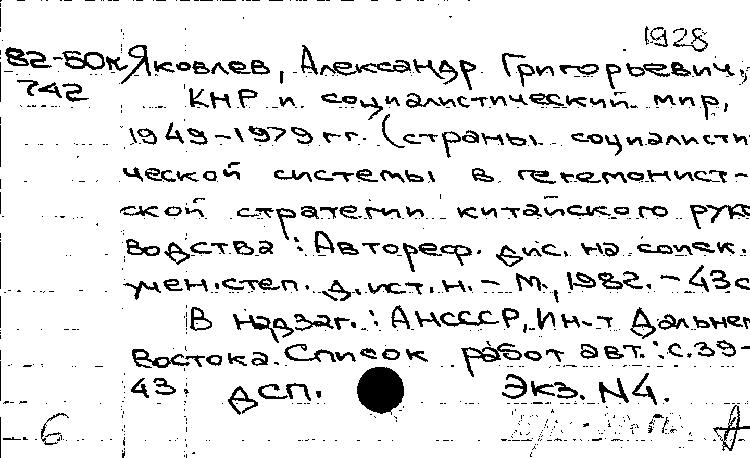 1928
82-50к Яковлев, Александр Григорьевич,
742
КНР и социалистический мир,
1949-1979 гг. (страны социалисти
ческой системы в гегемонист-
ской стратегии китайского руко
водства : Автореф. дис. на соиск.
учен. степ. д. ист. н. - М., 1982. - 43с
В надзаг.: АНСССР, Ин-т Дальнег
Востока. Список работ авт.: с.39-
43. ДСП. Экз. N4.
6